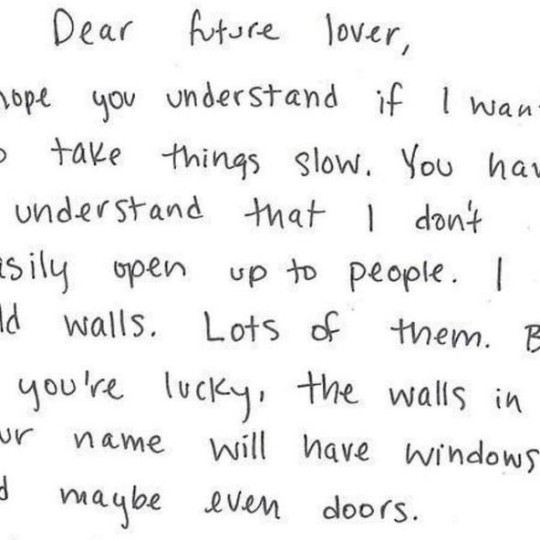 Dear future lover,
hope you understand if I wan
take things slow. You hav
understand that I don't
sily open up to people. I
ld walls. Lots of them. B
you're lucky, the walls in
ur name will have windows
maybe even doors.